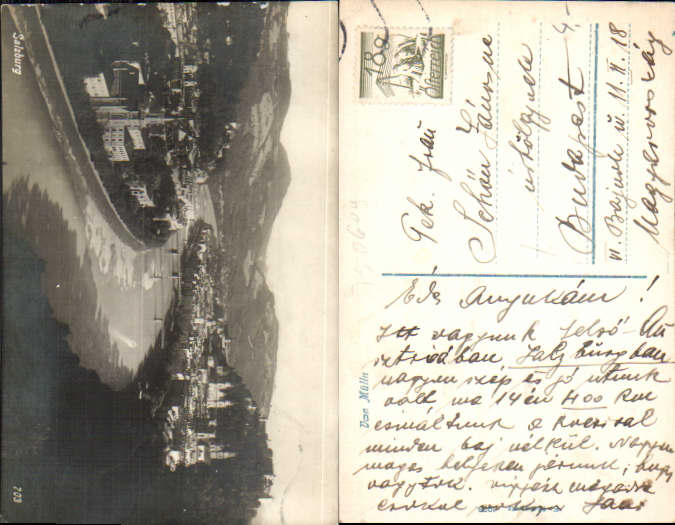 Salzburg
703
18g
Österreich
Tek. frau
Schön Jánosné
úrhölgynek
Budapest 4.-
VI. Bajnok u. 11. II. 18
Magyarország
Von Mülln
Édes Anyukám!
Itt vagyunk Felső-Au
sztriában Salzburgban
nagyon szép és jó utunk
volt ma 14én 400 km
csináltunk a kocsival
minden baj nélkül. Nagyon
magas hegyeken jöttünk, hogy
vagytok.
csókol